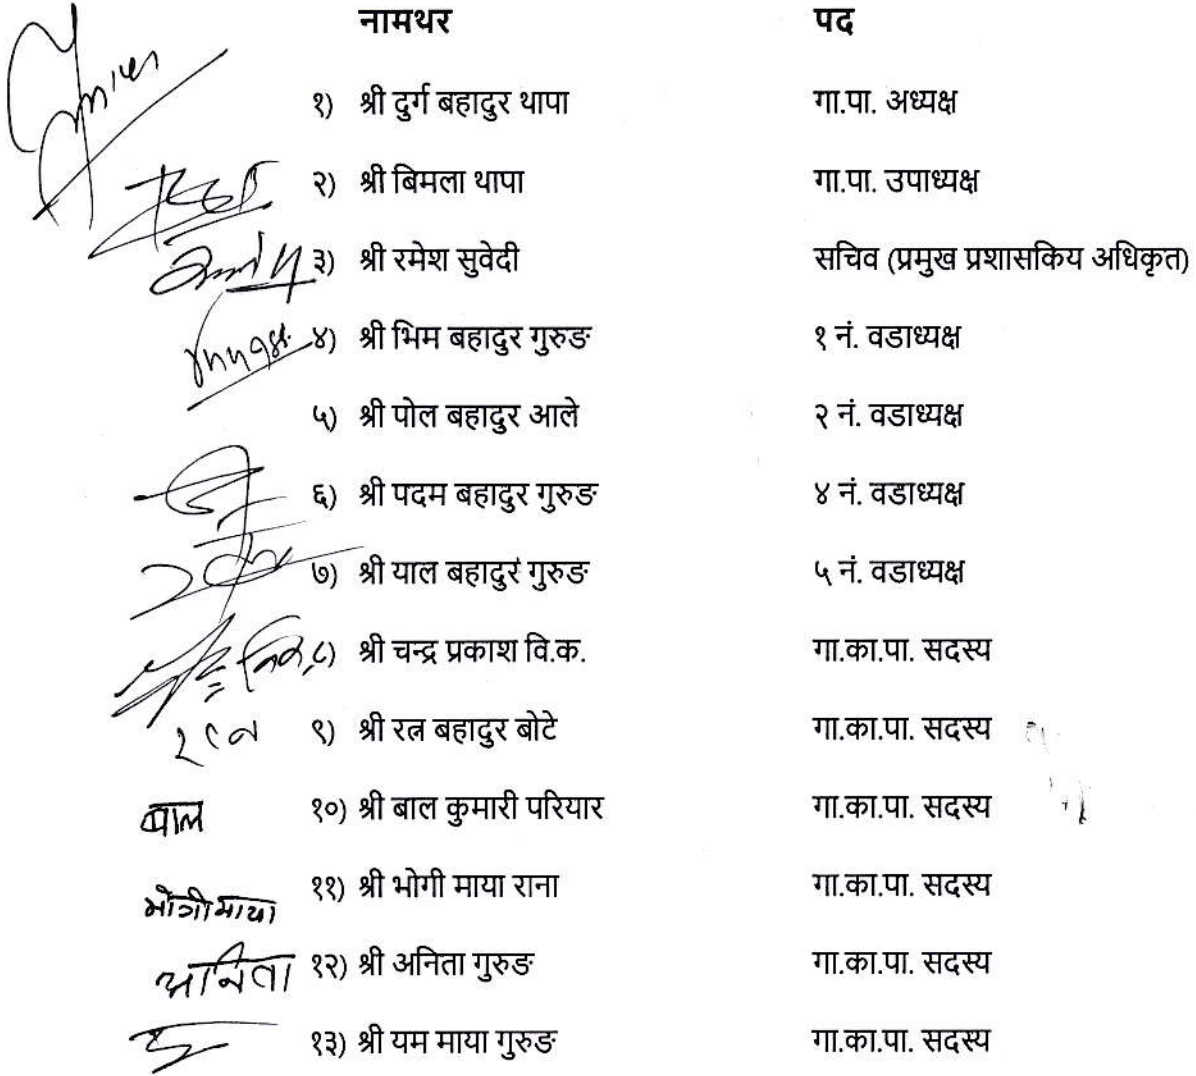 नामथर पद
१) श्री दुर्ग बहादुर थापा गा.पा. अध्यक्ष
२) श्री बिमला थापा गा.पा. उपाध्यक्ष
३) श्री रमेश सुवेदी सचिव (प्रमुख प्रशासकिय अधिकृत)
४) श्री भिम बहादुर गुरुङ १ नं. वडाध्यक्ष
५) श्री पोल बहादुर आले २ नं. वडाध्यक्ष
६) श्री पदम बहादुर गुरुङ ४ नं. वडाध्यक्ष
७) श्री याल बहादुर गुरुङ ५ नं. वडाध्यक्ष
८) श्री चन्द्र प्रकाश वि.क. गा.का.पा. सदस्य
९) श्री रत्न बहादुर बोटे गा.का.पा. सदस्य
बाल १०) श्री बाल कुमारी परियार गा.का.पा. सदस्य
भोगी माया ११) श्री भोगी माया राना गा.का.पा. सदस्य
अनिता १२) श्री अनिता गुरुङ गा.का.पा. सदस्य
१३) श्री यम माया गुरुङ गा.का.पा. सदस्य